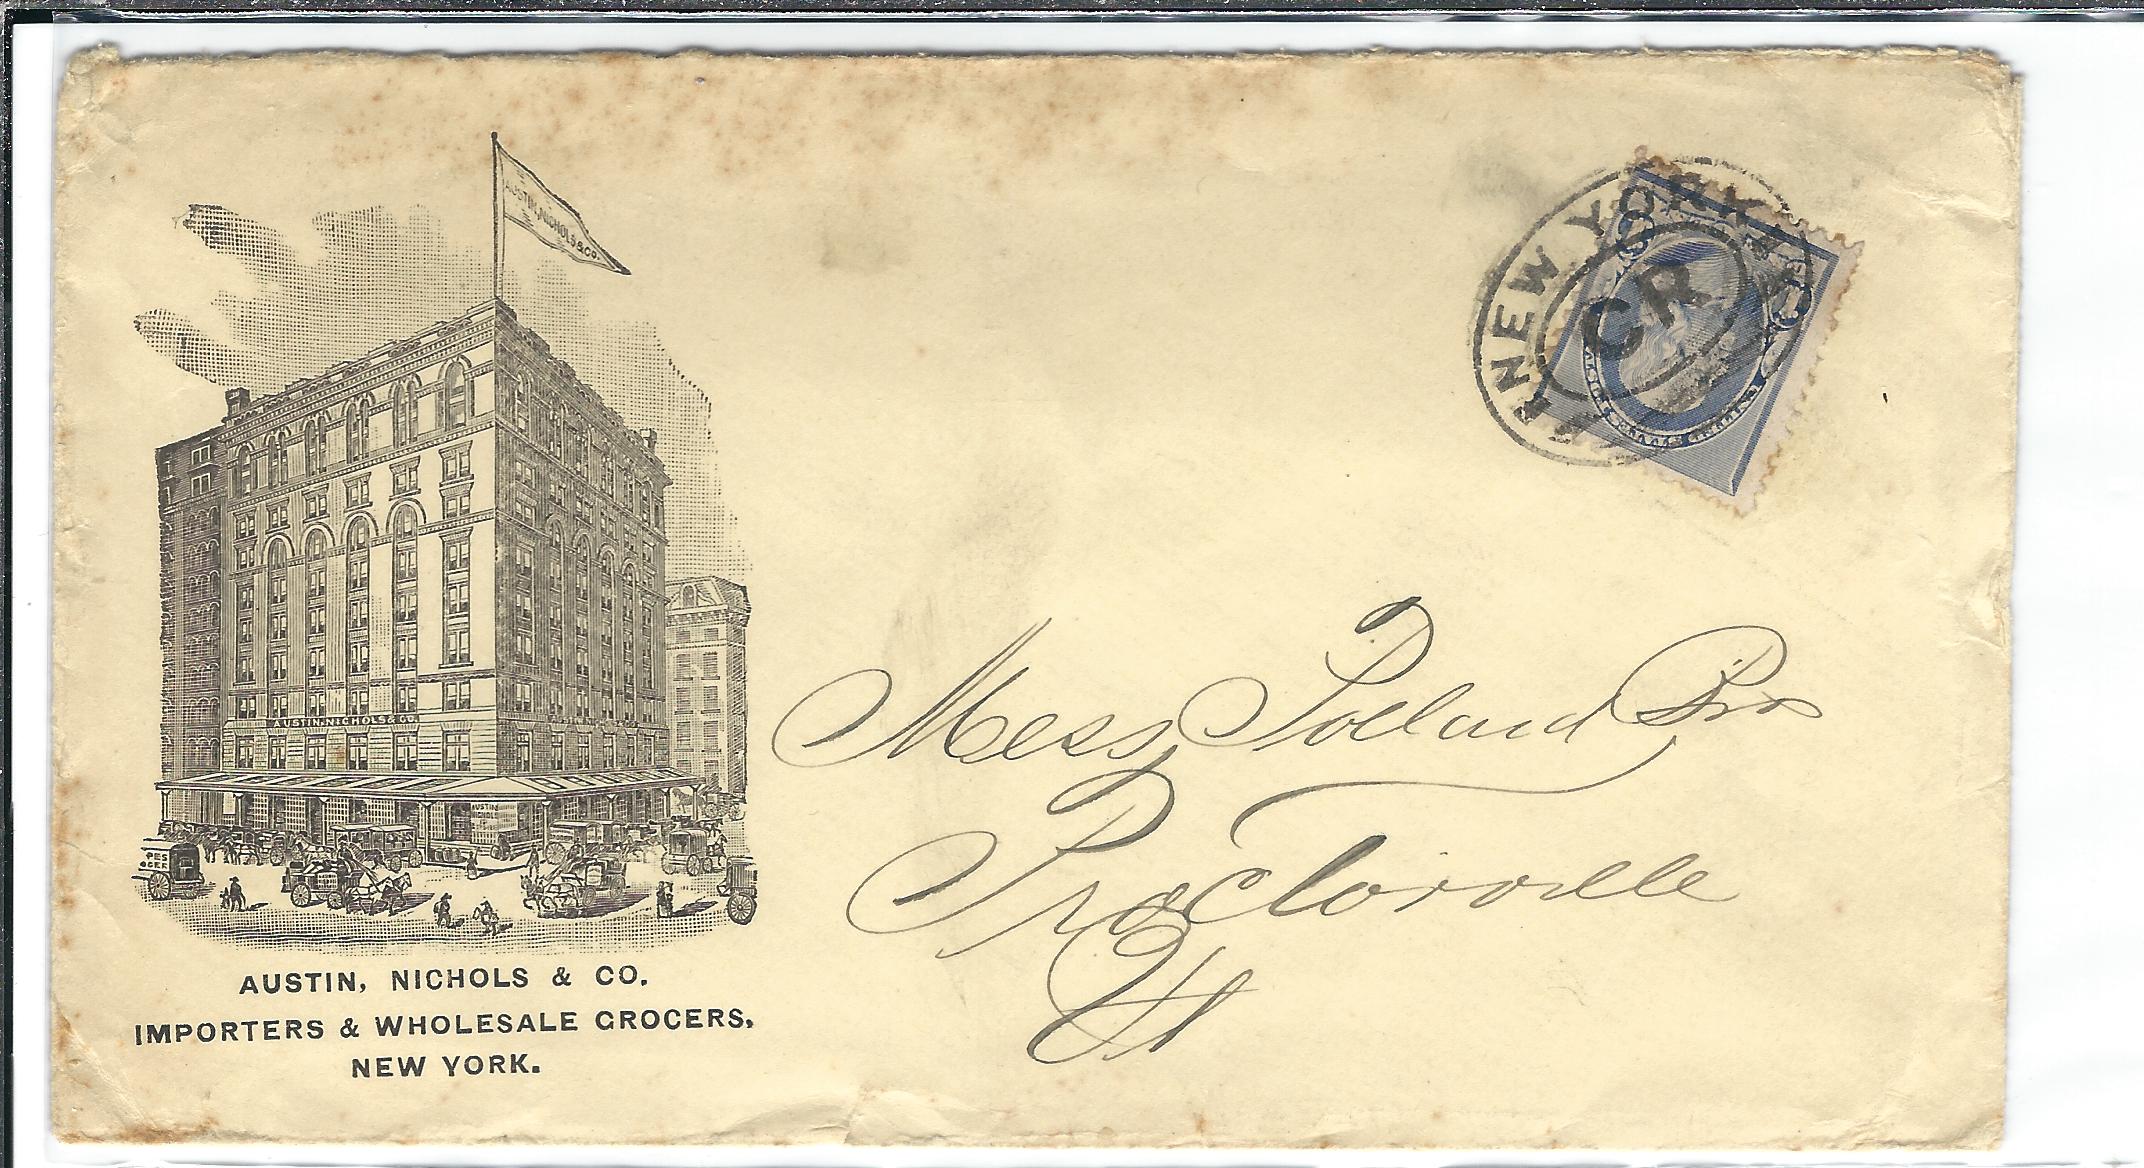 AUSTIN, NICHOLS & CO.
AUSTIN, NICHOLS & CO.
AUSTIN
AUSTIN, NICHOLS & CO.
IMPORTERS & WHOLESALE GROCERS,
NEW YORK.
NEW YORK
CR
Mess Polland Bros
Proctorville
Vt